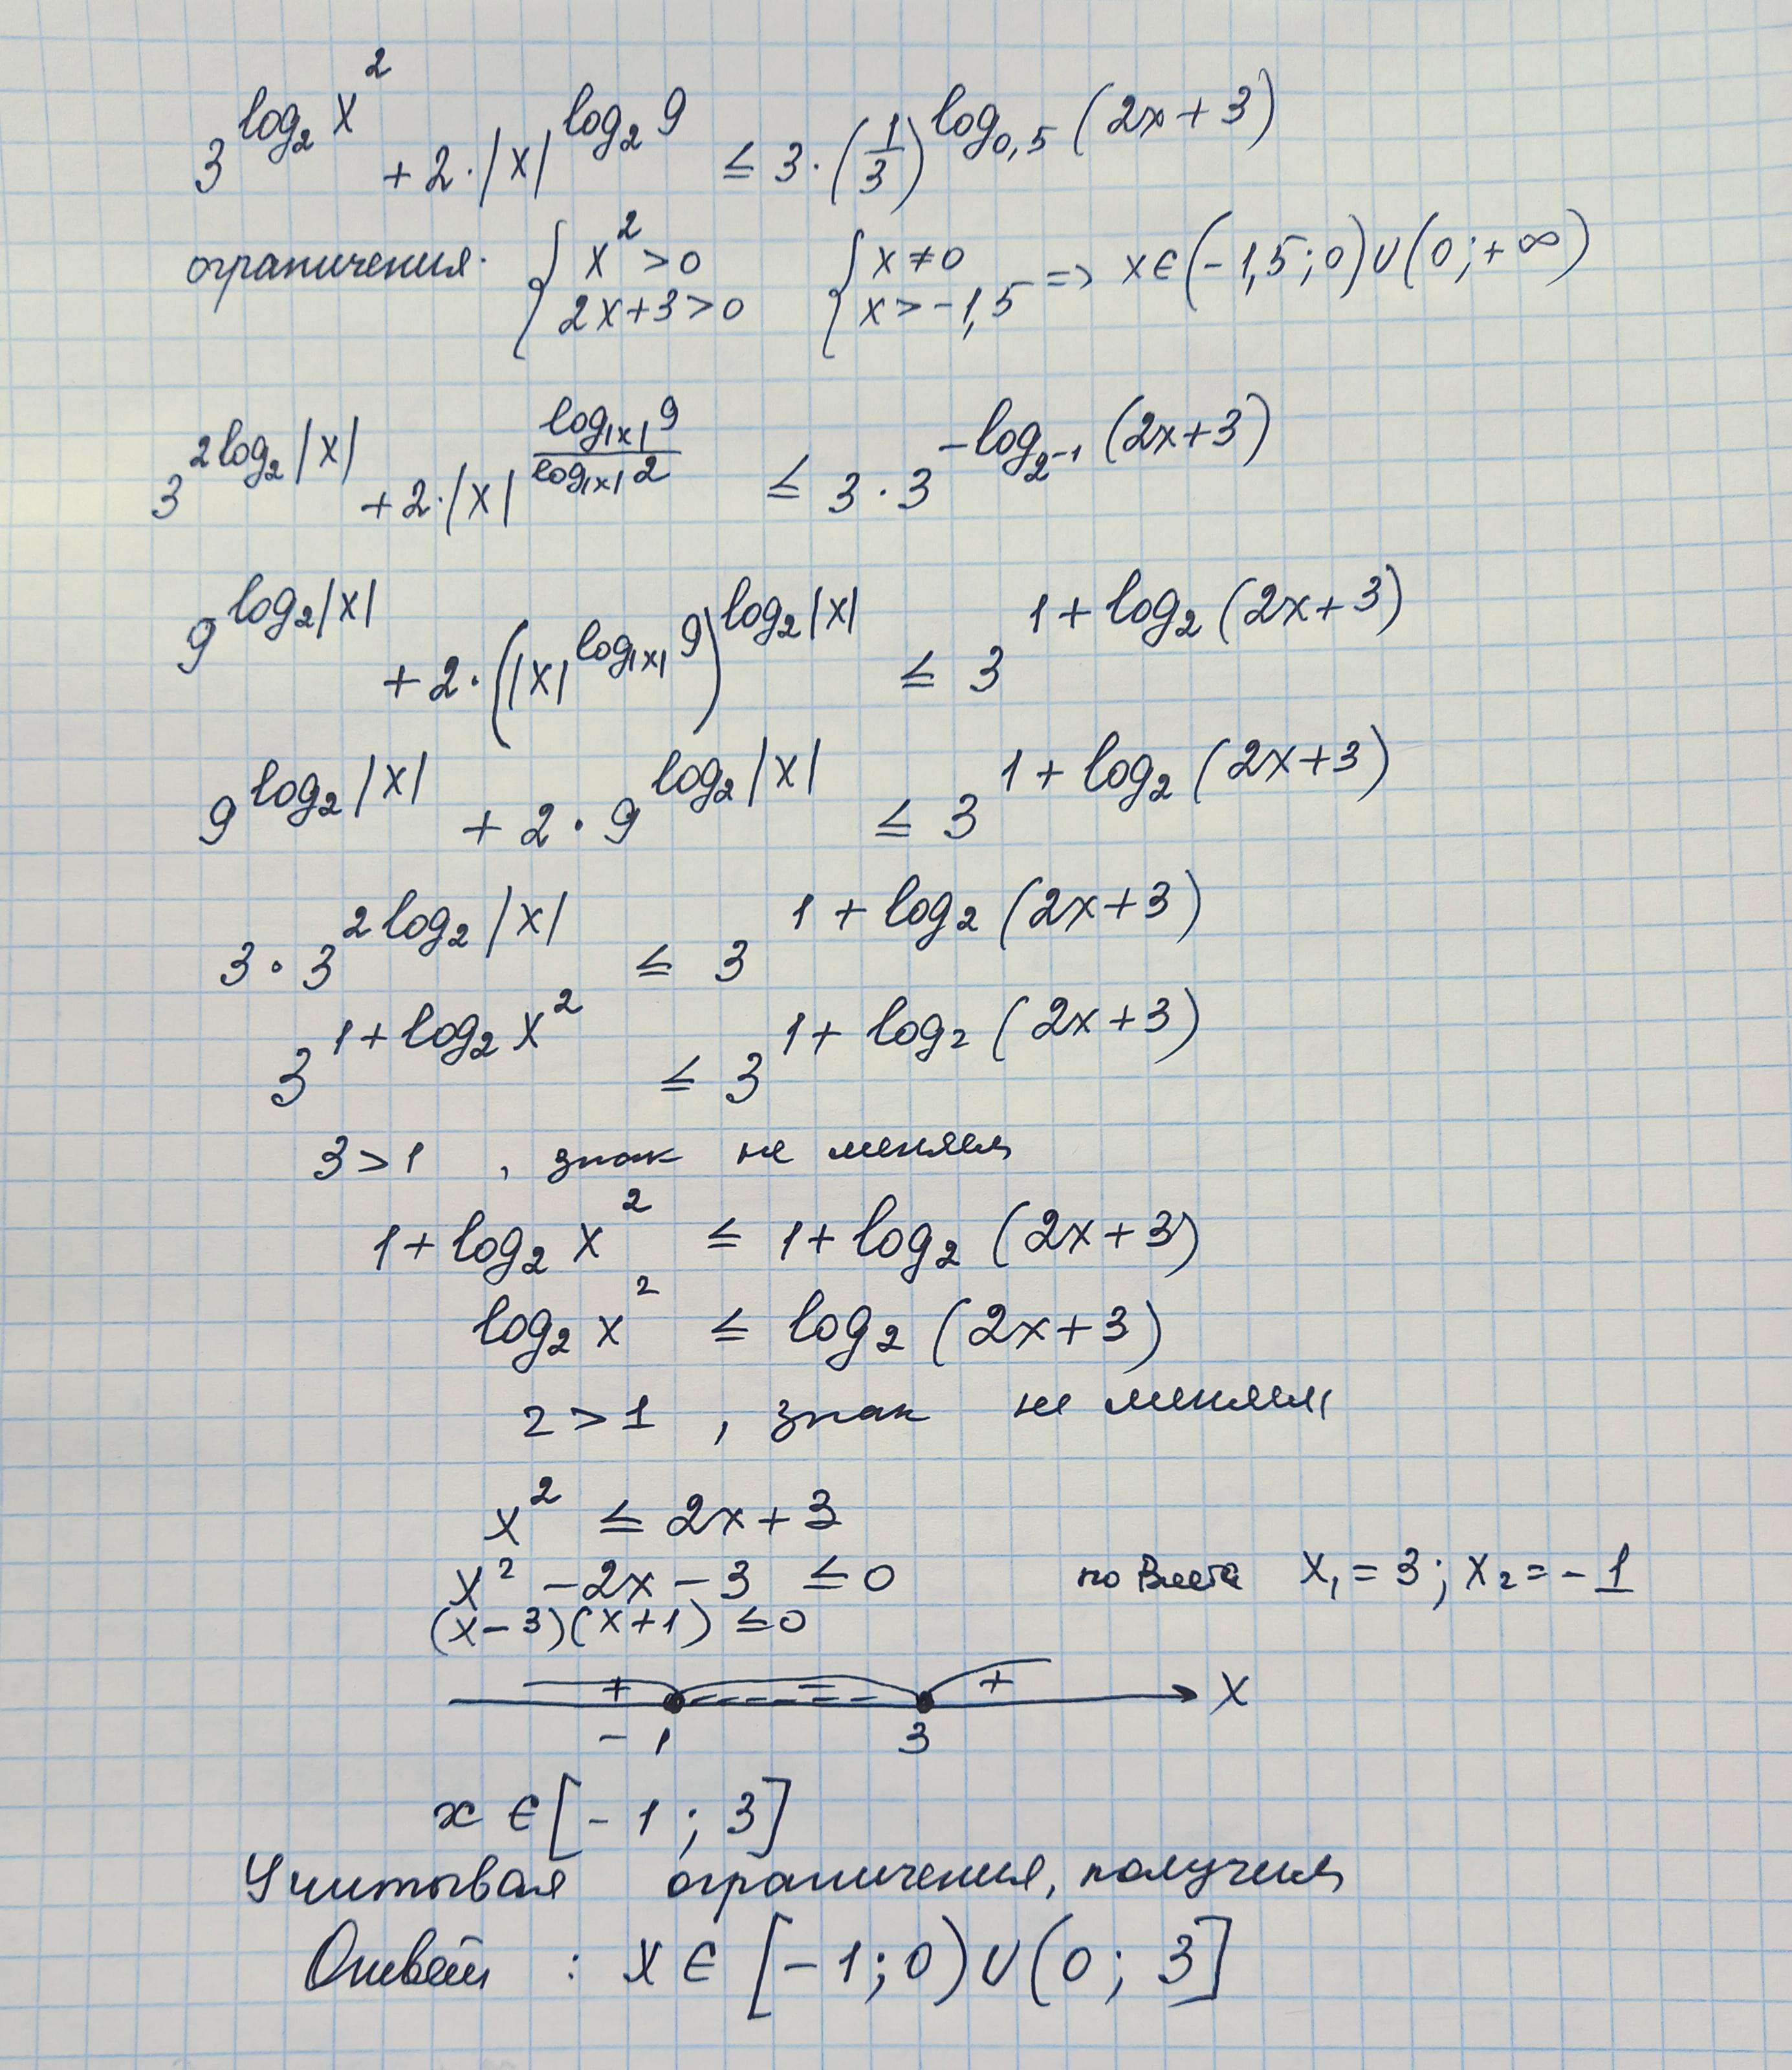 3^{log₂ x²} + 2·|x|^{log₂ 9} ≤ 3·(1/3)^{log_{0,5} (2x+3)}
ограничения. { x² > 0 2x+3 > 0 { x ≠ 0 x > -1,5 => x ∈ (-1,5; 0) ∪ (0; +∞)
3^{2log₂|x|} + 2·|x|^{log_{|x|} 9 / log_{|x|} 2} ≤ 3·3^{-log_{2^{-1}} (2x+3)}
9^{log₂|x|} + 2·(|x|^{log_{|x|} 9})^{log₂|x|} ≤ 3^{1+log₂ (2x+3)}
9^{log₂|x|} + 2·9^{log₂|x|} ≤ 3^{1+log₂ (2x+3)}
3·3^{2log₂|x|} ≤ 3^{1+log₂ (2x+3)}
3^{1+log₂ x²} ≤ 3^{1+log₂ (2x+3)}
3>1 , знак не меняем
1+log₂ x² ≤ 1+log₂ (2x+3)
log₂ x² ≤ log₂ (2x+3)
2>1 , знак не меняем
x² ≤ 2x+3
x² - 2x - 3 ≤ 0 по Виета x₁ = 3; x₂ = -1
(x-3)(x+1) ≤ 0
+ - + x
-1 3
x ∈ [-1; 3]
Учитывая ограничения, получим
Ответ : x ∈ [-1; 0) ∪ (0; 3]